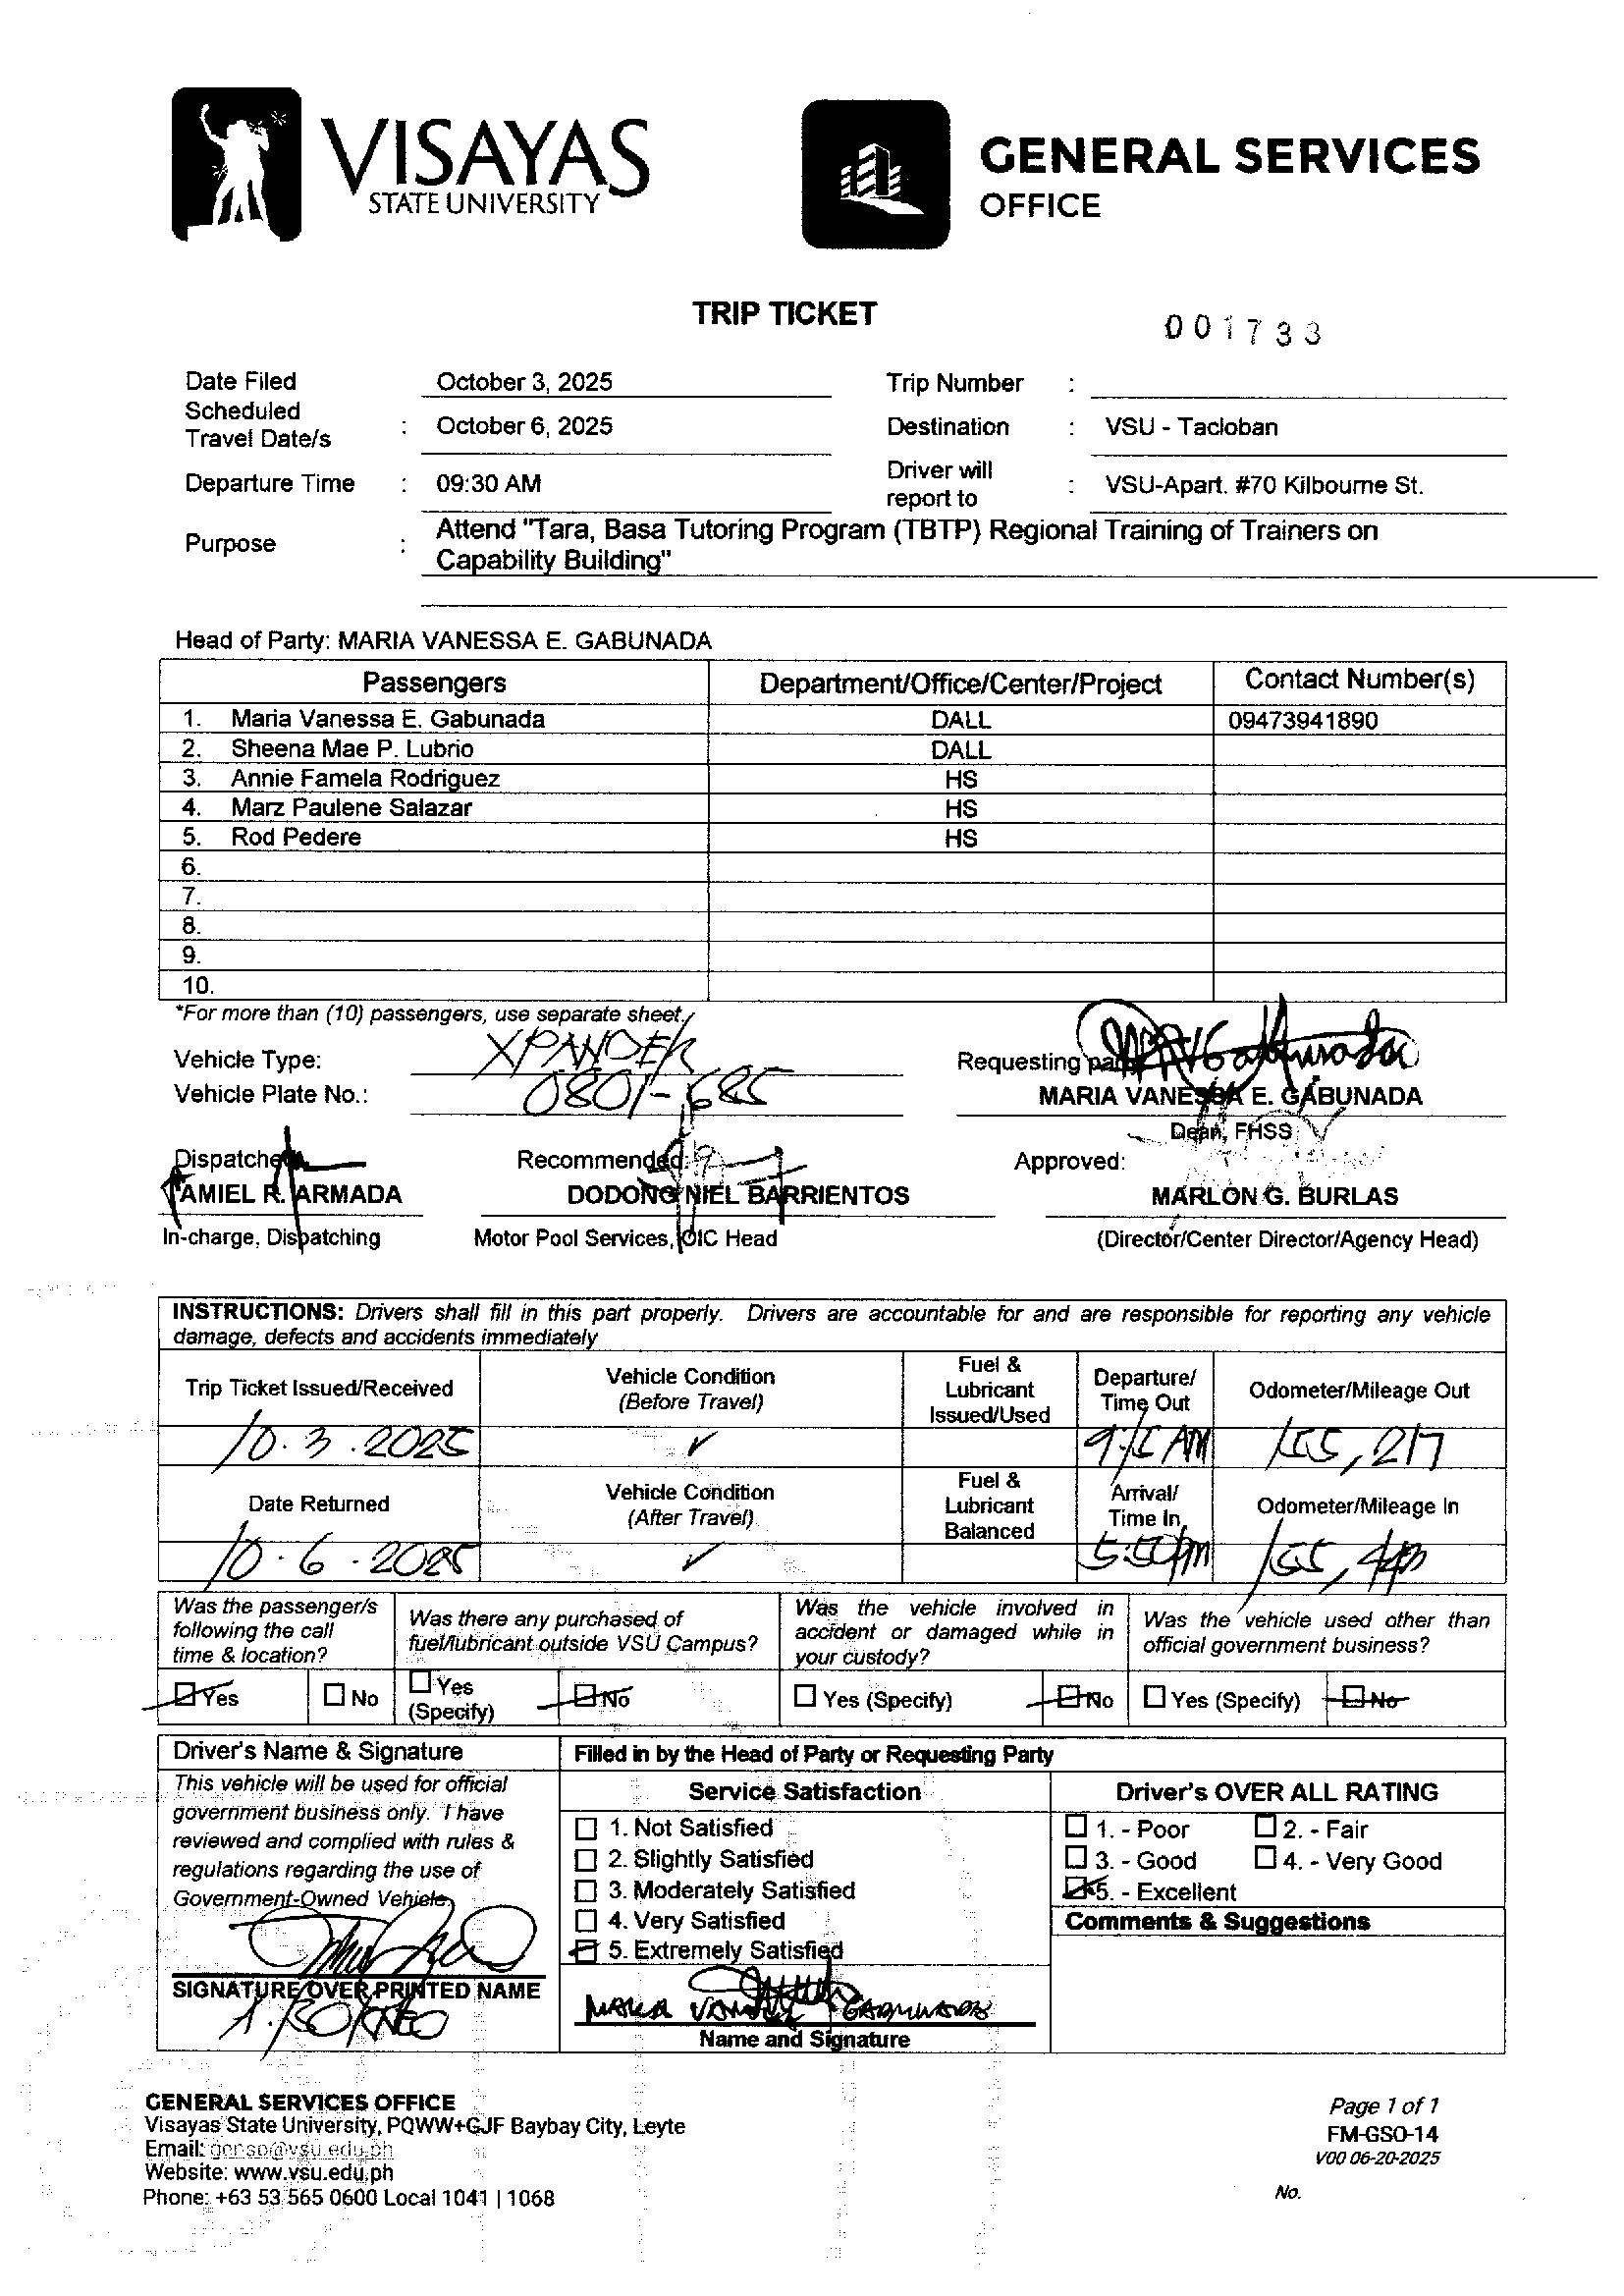 VISAYAS
STATE UNIVERSITY
GENERAL SERVICES
OFFICE
TRIP TICKET
001733
Date Filed October 3, 2025 Trip Number :
Scheduled
Travel Date/s : October 6, 2025 Destination : VSU - Tacloban
Departure Time : 09:30 AM Driver will
report to : VSU-Apart. #70 Kilbourne St.
Purpose : Attend "Tara, Basa Tutoring Program (TBTP) Regional Training of Trainers on
Capability Building"
Head of Party: MARIA VANESSA E. GABUNADA
Passengers Department/Office/Center/Project Contact Number(s)
1. Maria Vanessa E. Gabunada DALL 09473941890
2. Sheena Mae P. Lubrio DALL
3. Annie Famela Rodriguez HS
4. Marz Paulene Salazar HS
5. Rod Pedere HS
6.
7.
8.
9.
10.
*For more than (10) passengers, use separate sheet.
Vehicle Type: XPANDER Requesting
Vehicle Plate No.: 0801-685 MARIA VANESSA E. GABUNADA
Dean, FHSS
Dispatche Recommended: Approved:
AMIEL R. ARMADA DODONG NIEL BARRIENTOS MARLON G. BURLAS
In-charge, Dispatching Motor Pool Services, OIC Head (Director/Center Director/Agency Head)
INSTRUCTIONS: Drivers shall fill in this part properly. Drivers are accountable for and are responsible for reporting any vehicle
damage, defects and accidents immediately
Trip Ticket Issued/Received Vehicle Condition (Before Travel) Fuel & Lubricant Issued/Used Departure/ Time Out Odometer/Mileage Out
10.3.2025 ✓ 9:15 AM 155,217
Date Returned Vehicle Condition (After Travel) Fuel & Lubricant Balanced Arrival/ Time In Odometer/Mileage In
10.6.2025 ✓ 5:50pm
Was the passenger/s following the call time & location? Was there any purchased of fuel/lubricant outside VSU Campus? Was the vehicle involved in accident or damaged while in your custody? Was the vehicle used other than official government business?
Yes No Yes (Specify) No Yes (Specify) No Yes (Specify) No
Driver's Name & Signature Filled in by the Head of Party or Requesting Party
This vehicle will be used for official
government business only. I have
reviewed and complied with rules &
regulations regarding the use of
Government-Owned Vehicle.
SIGNATURE OVER PRINTED NAME
Service Satisfaction
1. Not Satisfied
2. Slightly Satisfied
3. Moderately Satisfied
4. Very Satisfied
5. Extremely Satisfied
MARIA GABUNADA
Name and Signature
Driver's OVER ALL RATING
1. - Poor 2. - Fair
3. - Good 4. - Very Good
5. - Excellent
Comments & Suggestions
GENERAL SERVICES OFFICE
Visayas State University, PQWW+GJF Baybay City, Leyte
Email: @vsu.edu.ph
Website: www.vsu.edu.ph
Phone: +63 53 565 0600 Local 1041 | 1068
Page 1 of 1
FM-GSO-14
V00 06-20-2025
No.